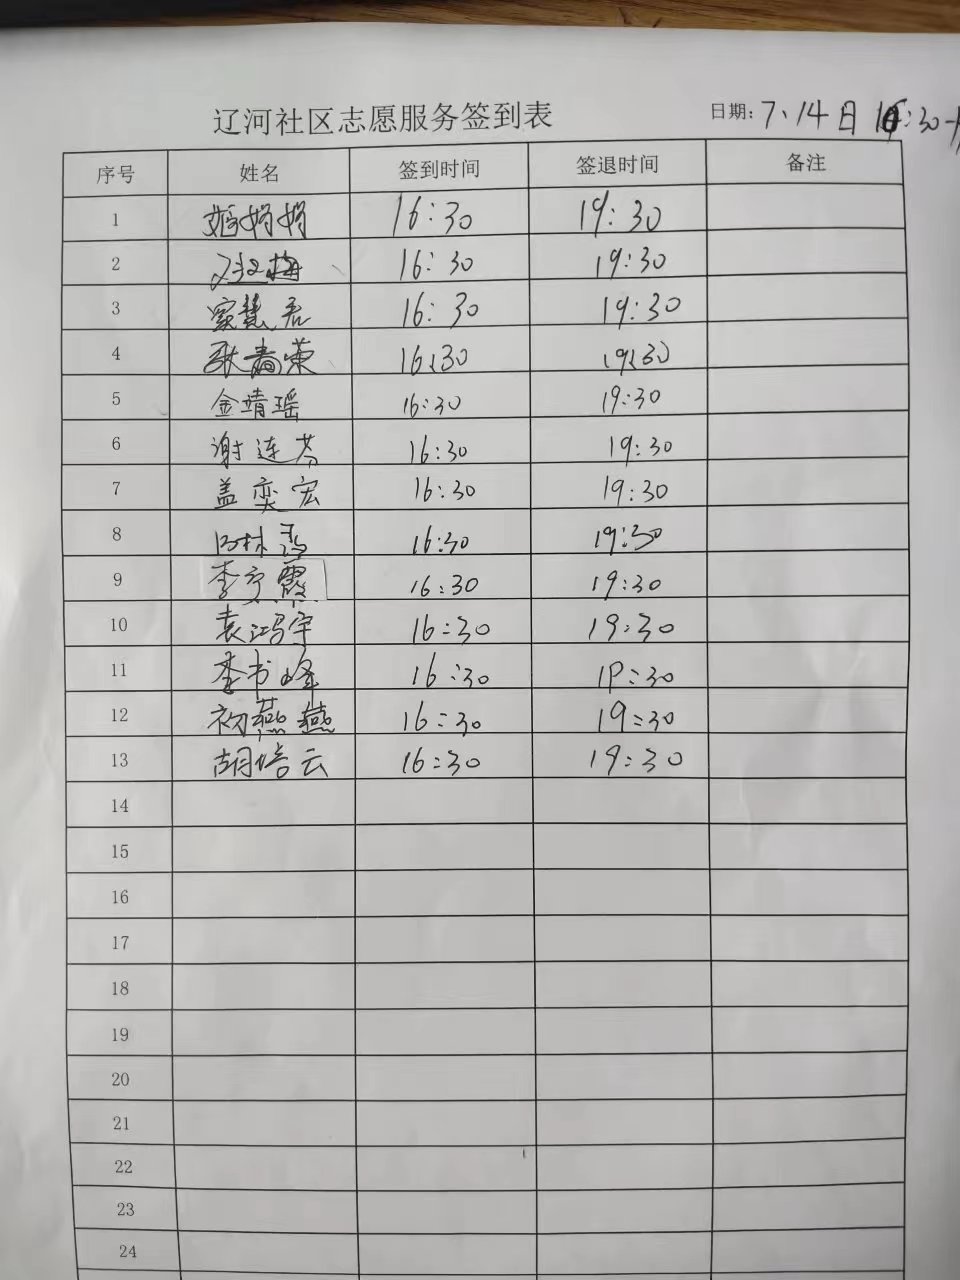 辽河社区志愿服务签到表
日期: 7、14日 16:30-
序号 姓名 签到时间 签退时间 备注
1 16:30 19:30
2 16:30 19:30
3 窦慧君 16:30 19:30
4 耿春荣 16:30 19:30
5 金靖瑶 16:30 19:30
6 谢连芬 16:30 19:30
7 盖奕宏 16:30 19:30
8 16:30 19:30
9 李宁霞 16:30 19:30
10 袁鸿宇 16:30 19:30
11 李书峰 16:30 19:30
12 初燕燕 16:30 19:30
13 胡培云 16:30 19:30
14
15
16
17
18
19
20
21
22
23
24